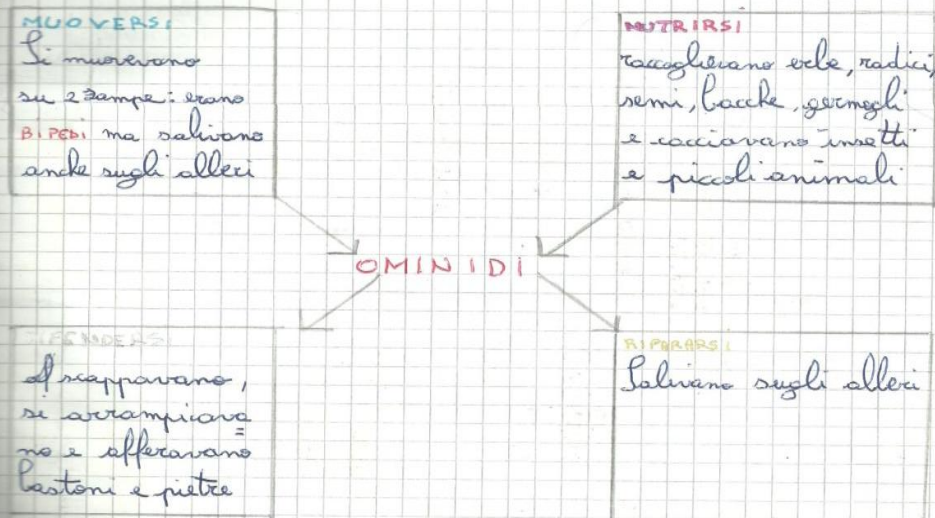 MUOVERSI
Si muovevano
su 2 zampe: erano
BIPEDI ma salivano
anche sugli alberi
NUTRIRSI
raccoglievano erbe, radici,
semi, bacche, germogli
e cacciavano insetti
e piccoli animali
OMINIDI
DIFENDERSI
scappavano,
si arrampicava
no e afferavano
bastoni e pietre
RIPARARSI
Salivano sugli alberi